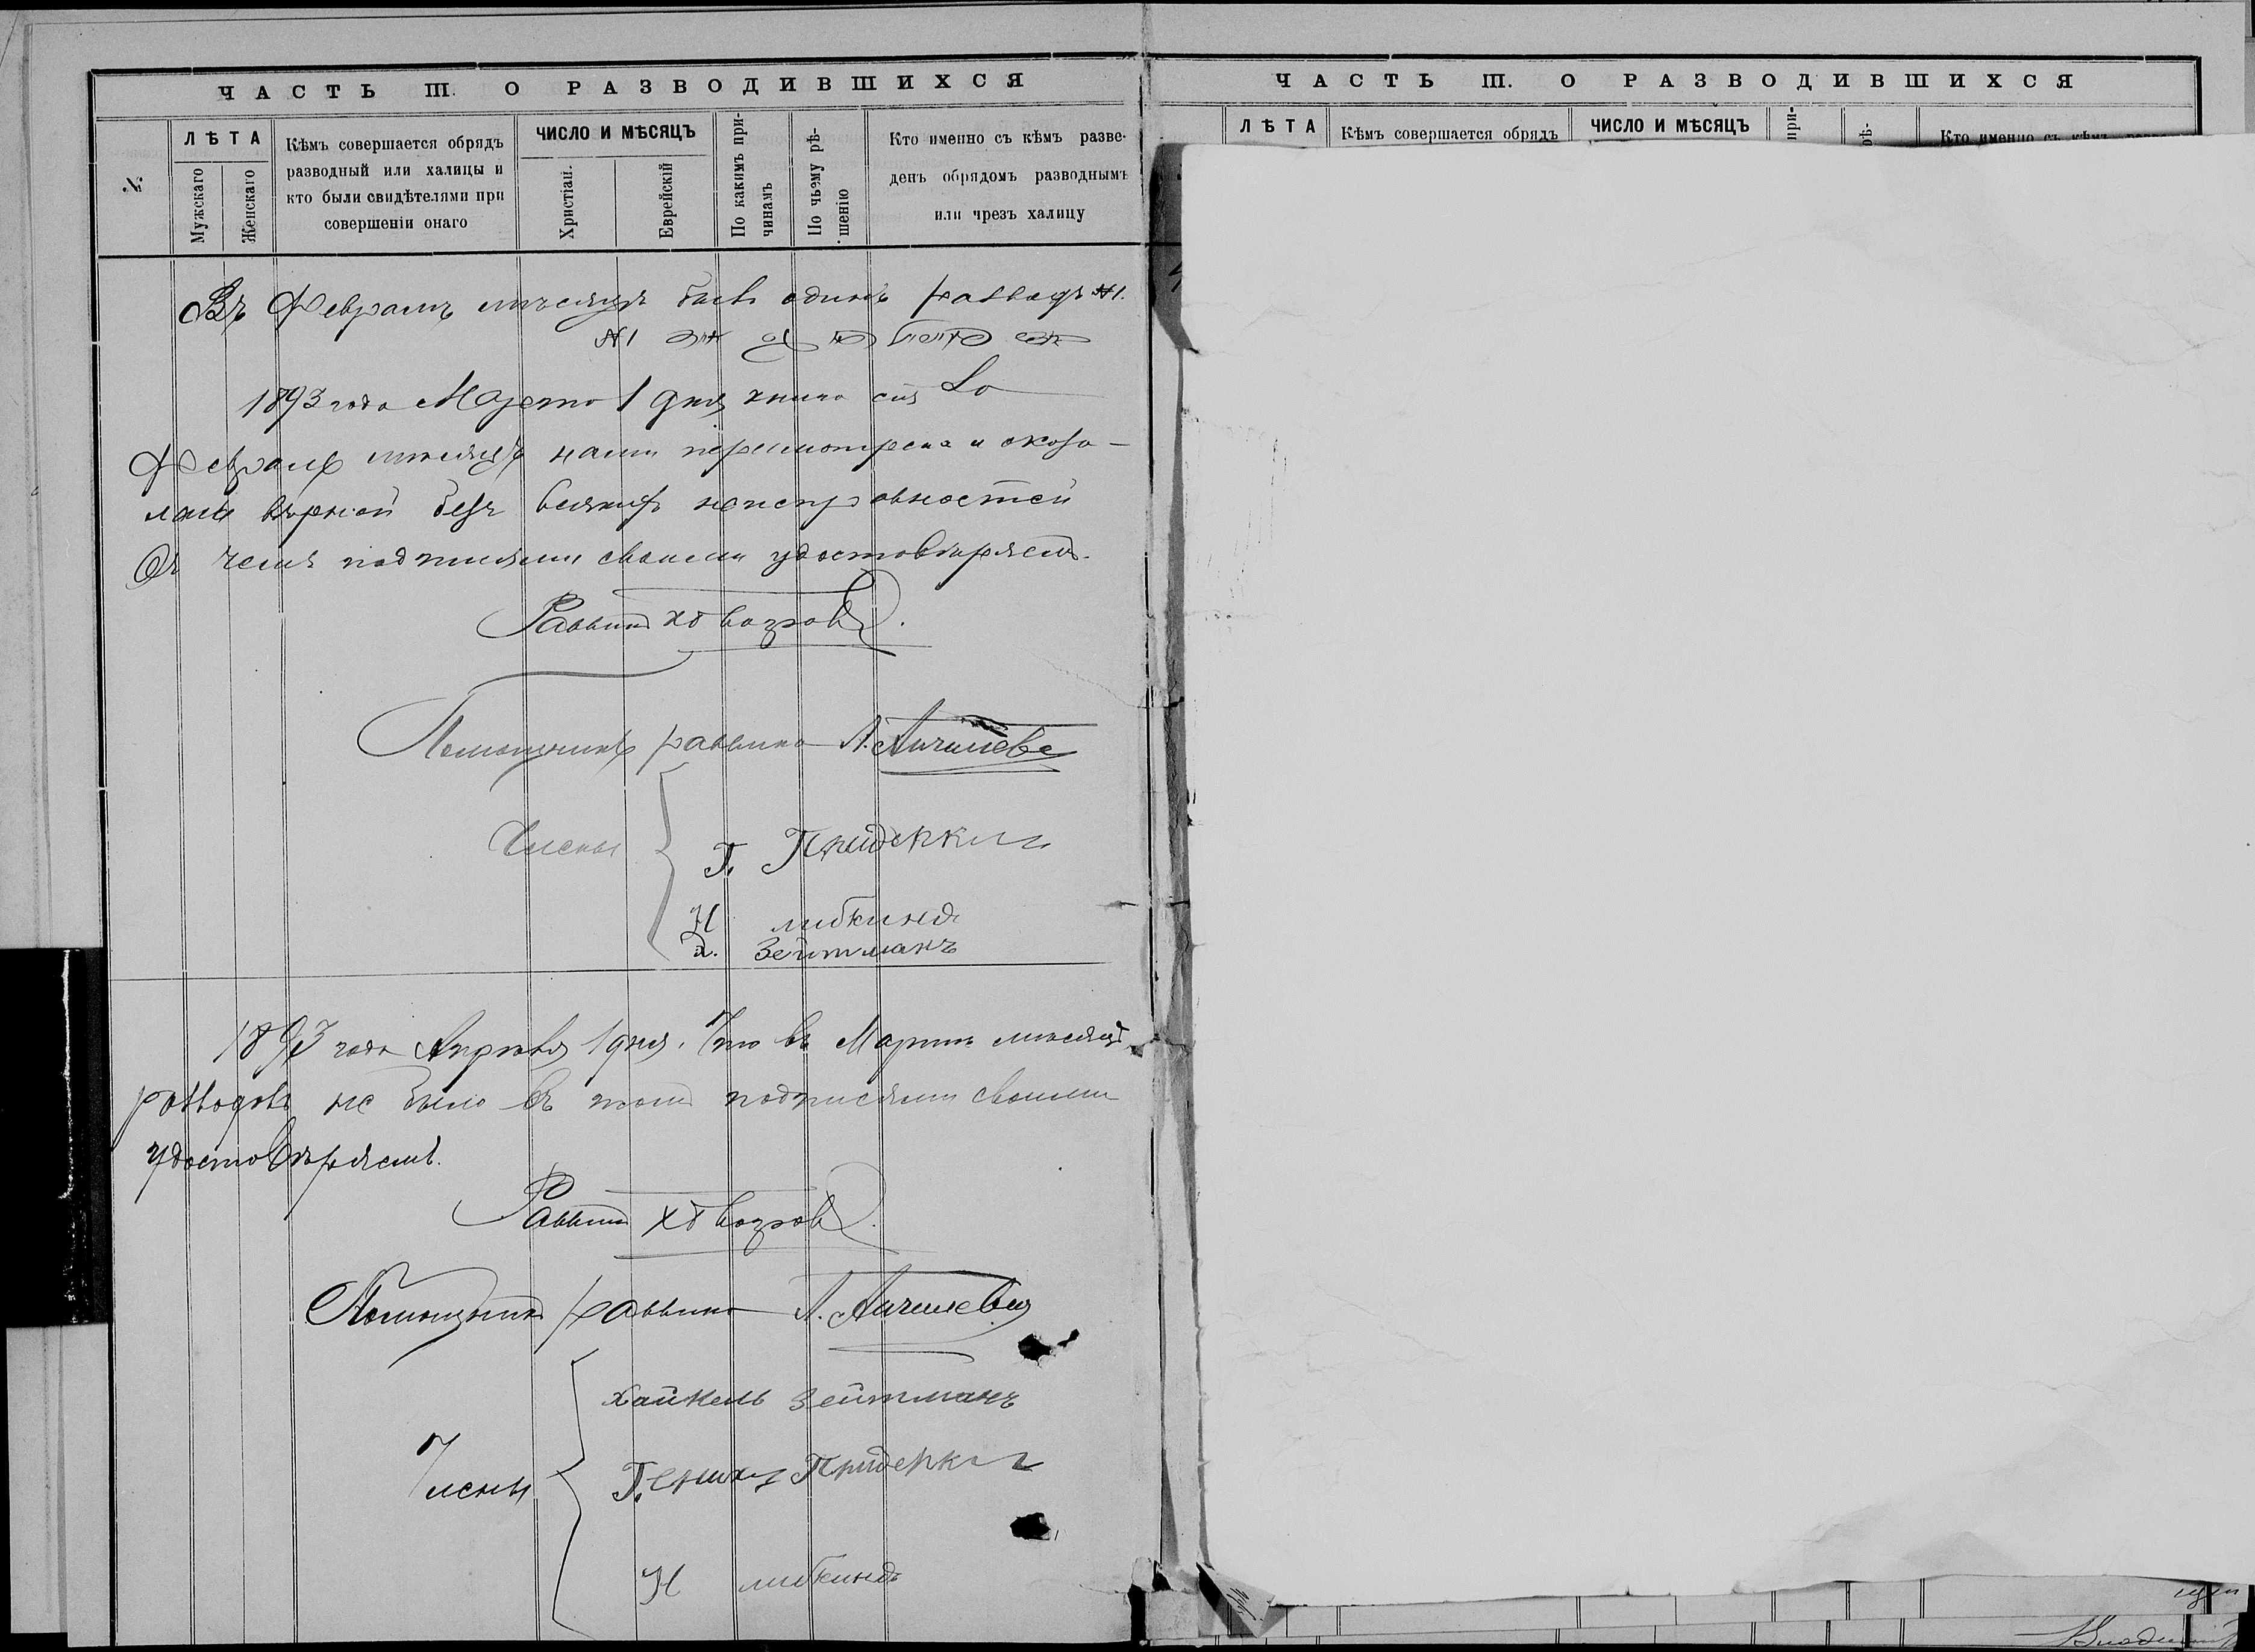 ЧАСТЬ III. О РАЗВОДИВШИХСЯ
№.
ЛѢТА
Мужскаго
Женскаго
Кѣмъ совершается обрядъ
разводный или халицы и
кто были свидѣтелями при
совершеніи онаго
ЧИСЛО И МѢСЯЦЪ
Христіан.
Еврейскій
По какимъ при-
чинамъ
По чьему рѣ-
шенію
Кто именно съ кѣмъ разве-
денъ обрядомъ разводнымъ
или чрезъ халицу
Въ Февралѣ мѣсяцѣ былъ одинъ разводъ №1.
№1
1893 года Марта 1 дня книга сія за
Февраль мѣсяцъ нами пересмотрена и оказа-
лась вѣрной безъ всякихъ неисправностей
Въ чемъ подписями своими удостовѣряемъ.
Раввинъ
Помощникъ раввина Л.
Члены
Г.
Н либкиндъ
Х. Зейтманъ
1893 года Апрѣля 1 дня. Что въ Мартѣ мѣсяцѣ
разводовъ не было въ томъ подписями своими
удостовѣряемъ.
Раввинъ
Помощникъ раввина Л.
Члены
Хайкель Зейтманъ
Н либкиндъ
ЧАСТЬ III. О РАЗВОДИВШИХСЯ
ЛѢТА
Кѣмъ совершается обрядъ
ЧИСЛО И МѢСЯЦЪ
при-
рѣ-
Кто именно съ кѣмъ